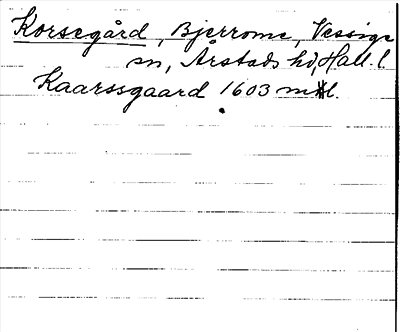 Korsegård, Bjerrome, Vessige
sn, Årstads hd, Hall. l.
Kaarssgaard 1603 mtl.